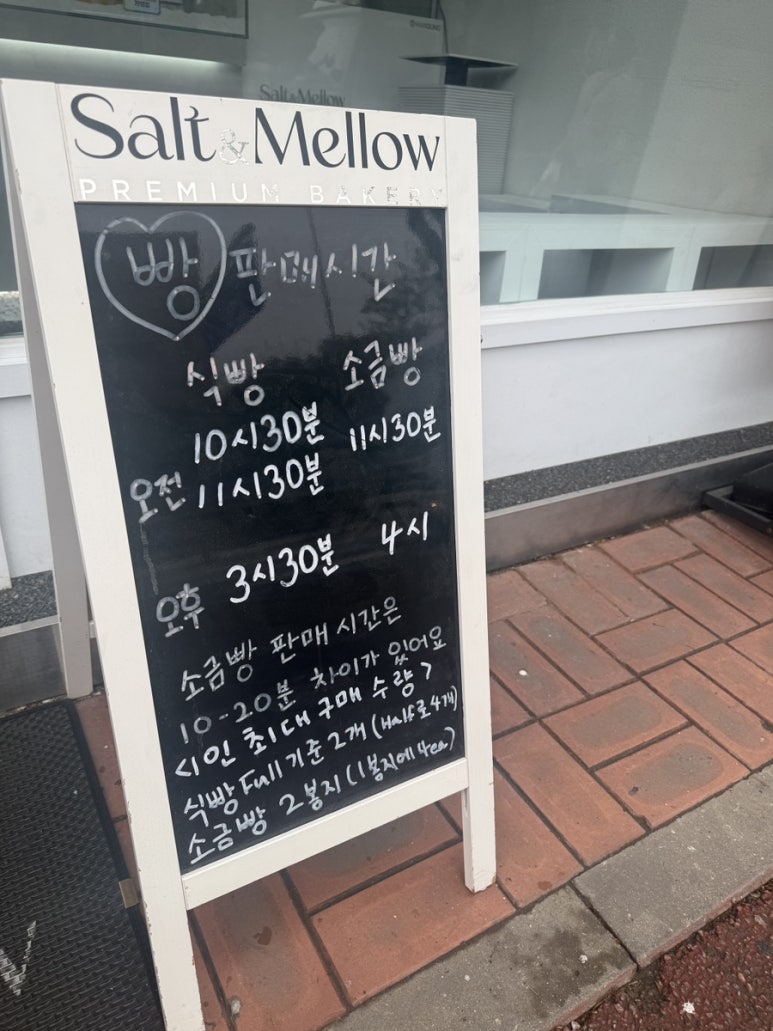 Salt & Mellow
PREMIUM BAKERY
빵 판매시간
식빵 소금빵
10시30분 11시30분
오전 11시30분
오후 3시30분 4시
소금빵 판매 시간은
10-20분 차이가 있어요
<1인 최대 구매 수량>
식빵 Full 기준 2개 (Half로 4개)
소금빵 2봉지 (1봉지에 4ea)
Salt & Mellow